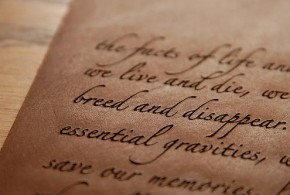 the facts of life and
we live and die, we
breed and disappear.
essential gravities, w
save our memories,